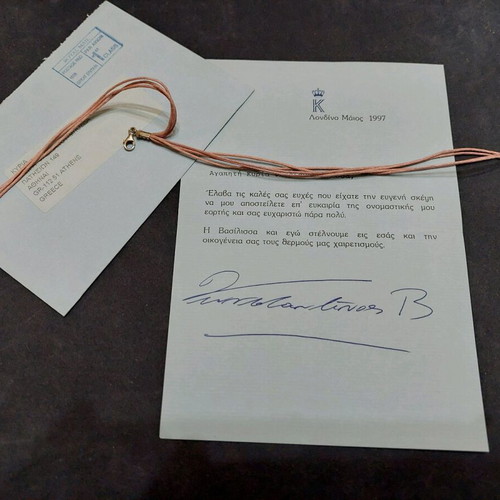 1ST
CLASS
ΚΥΡΙΑ
ΠΑΤΗΣΙΩΝ 149
ΑΘΗΝΑΙ
GR-112 51 ATHENS
GREECE
K
Λονδίνο Μάιος 1997
Αγαπητή Κυρία
Έλαβα τις καλές σας ευχές που είχατε την ευγενή σκέψη
να μου αποστείλετε επ' ευκαιρία της ονομαστικής μου
εορτής και σας ευχαριστώ πάρα πολύ.
Η Βασίλισσα και εγώ στέλνουμε εις εσάς και την
οικογένεια σας τους θερμούς μας χαιρετισμούς.
Κωνσταντίνος Β